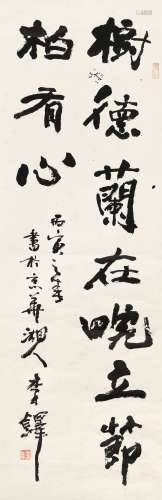 樹德蘭在畹立節
柏有心
丙寅之春
書於京華湘人李鐸